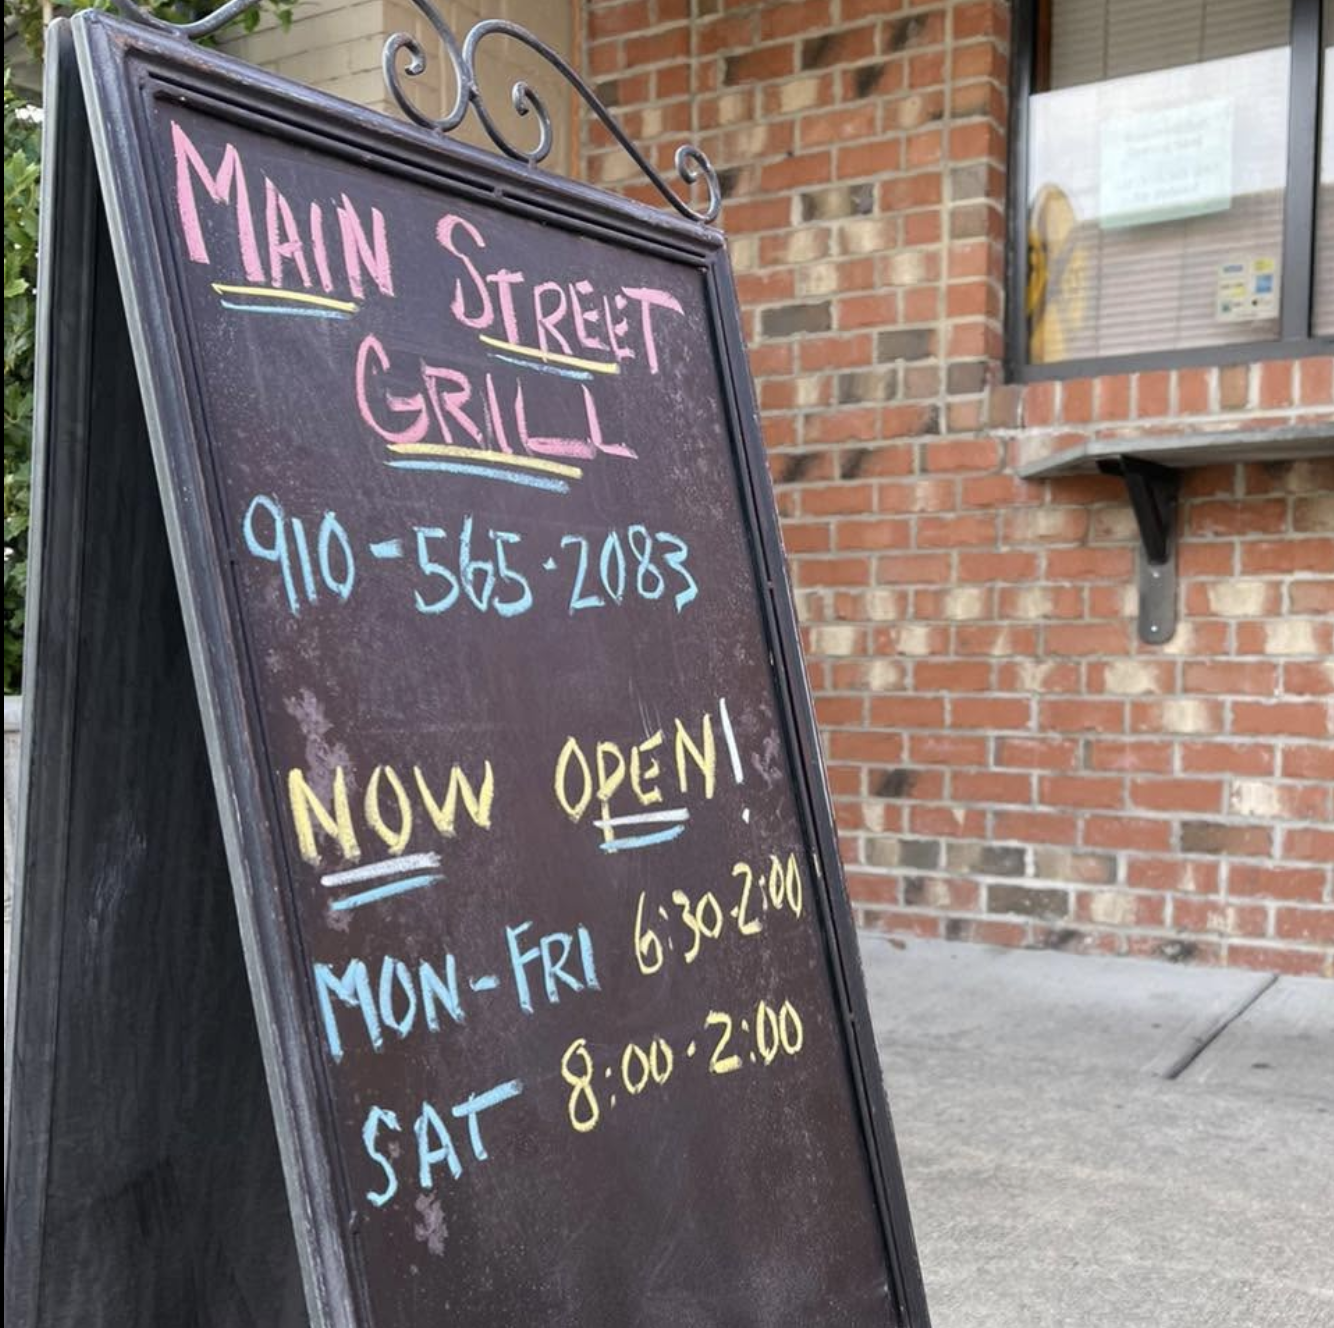 MAIN STREET
GRILL
910-565-2083
NOW OPEN!
MON-FRI 6:30-2:00
SAT 8:00-2:00